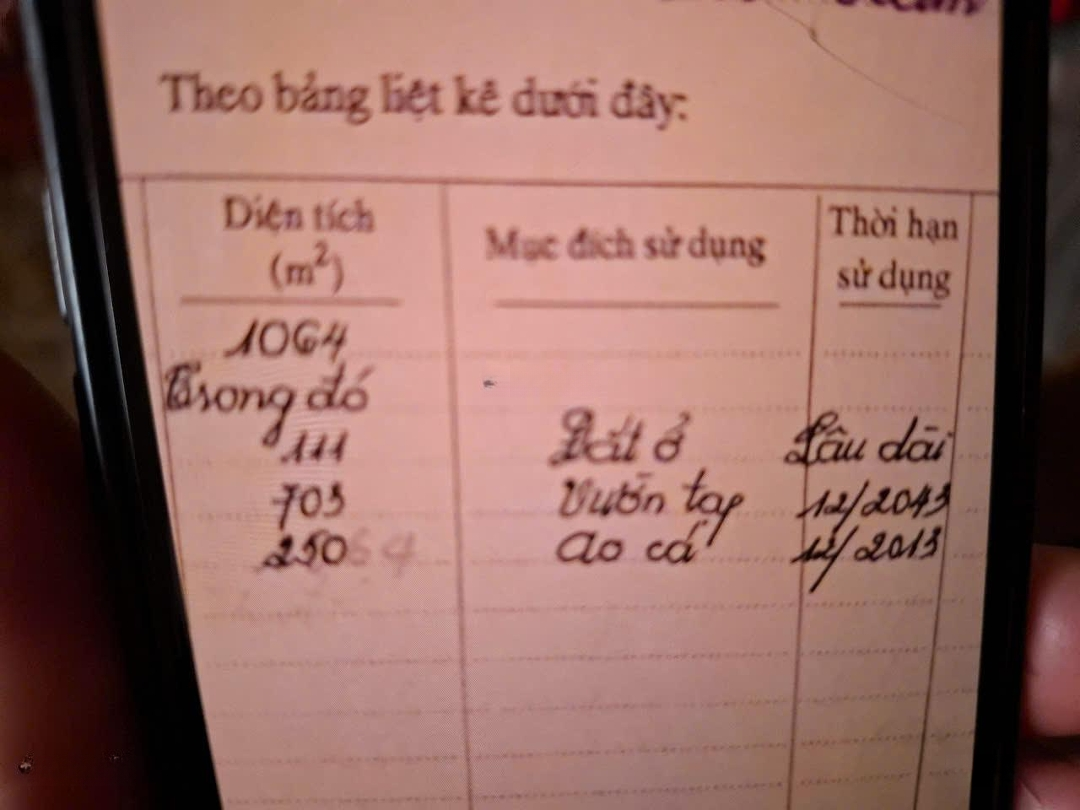 Theo bảng liệt kê dưới đây:
Diện tích (m²) Mục đích sử dụng Thời hạn sử dụng
1064
Trong đó
111 Đất ở Lâu dài
703 Vườn tạp 12/2043
250 ao cá 12/2013